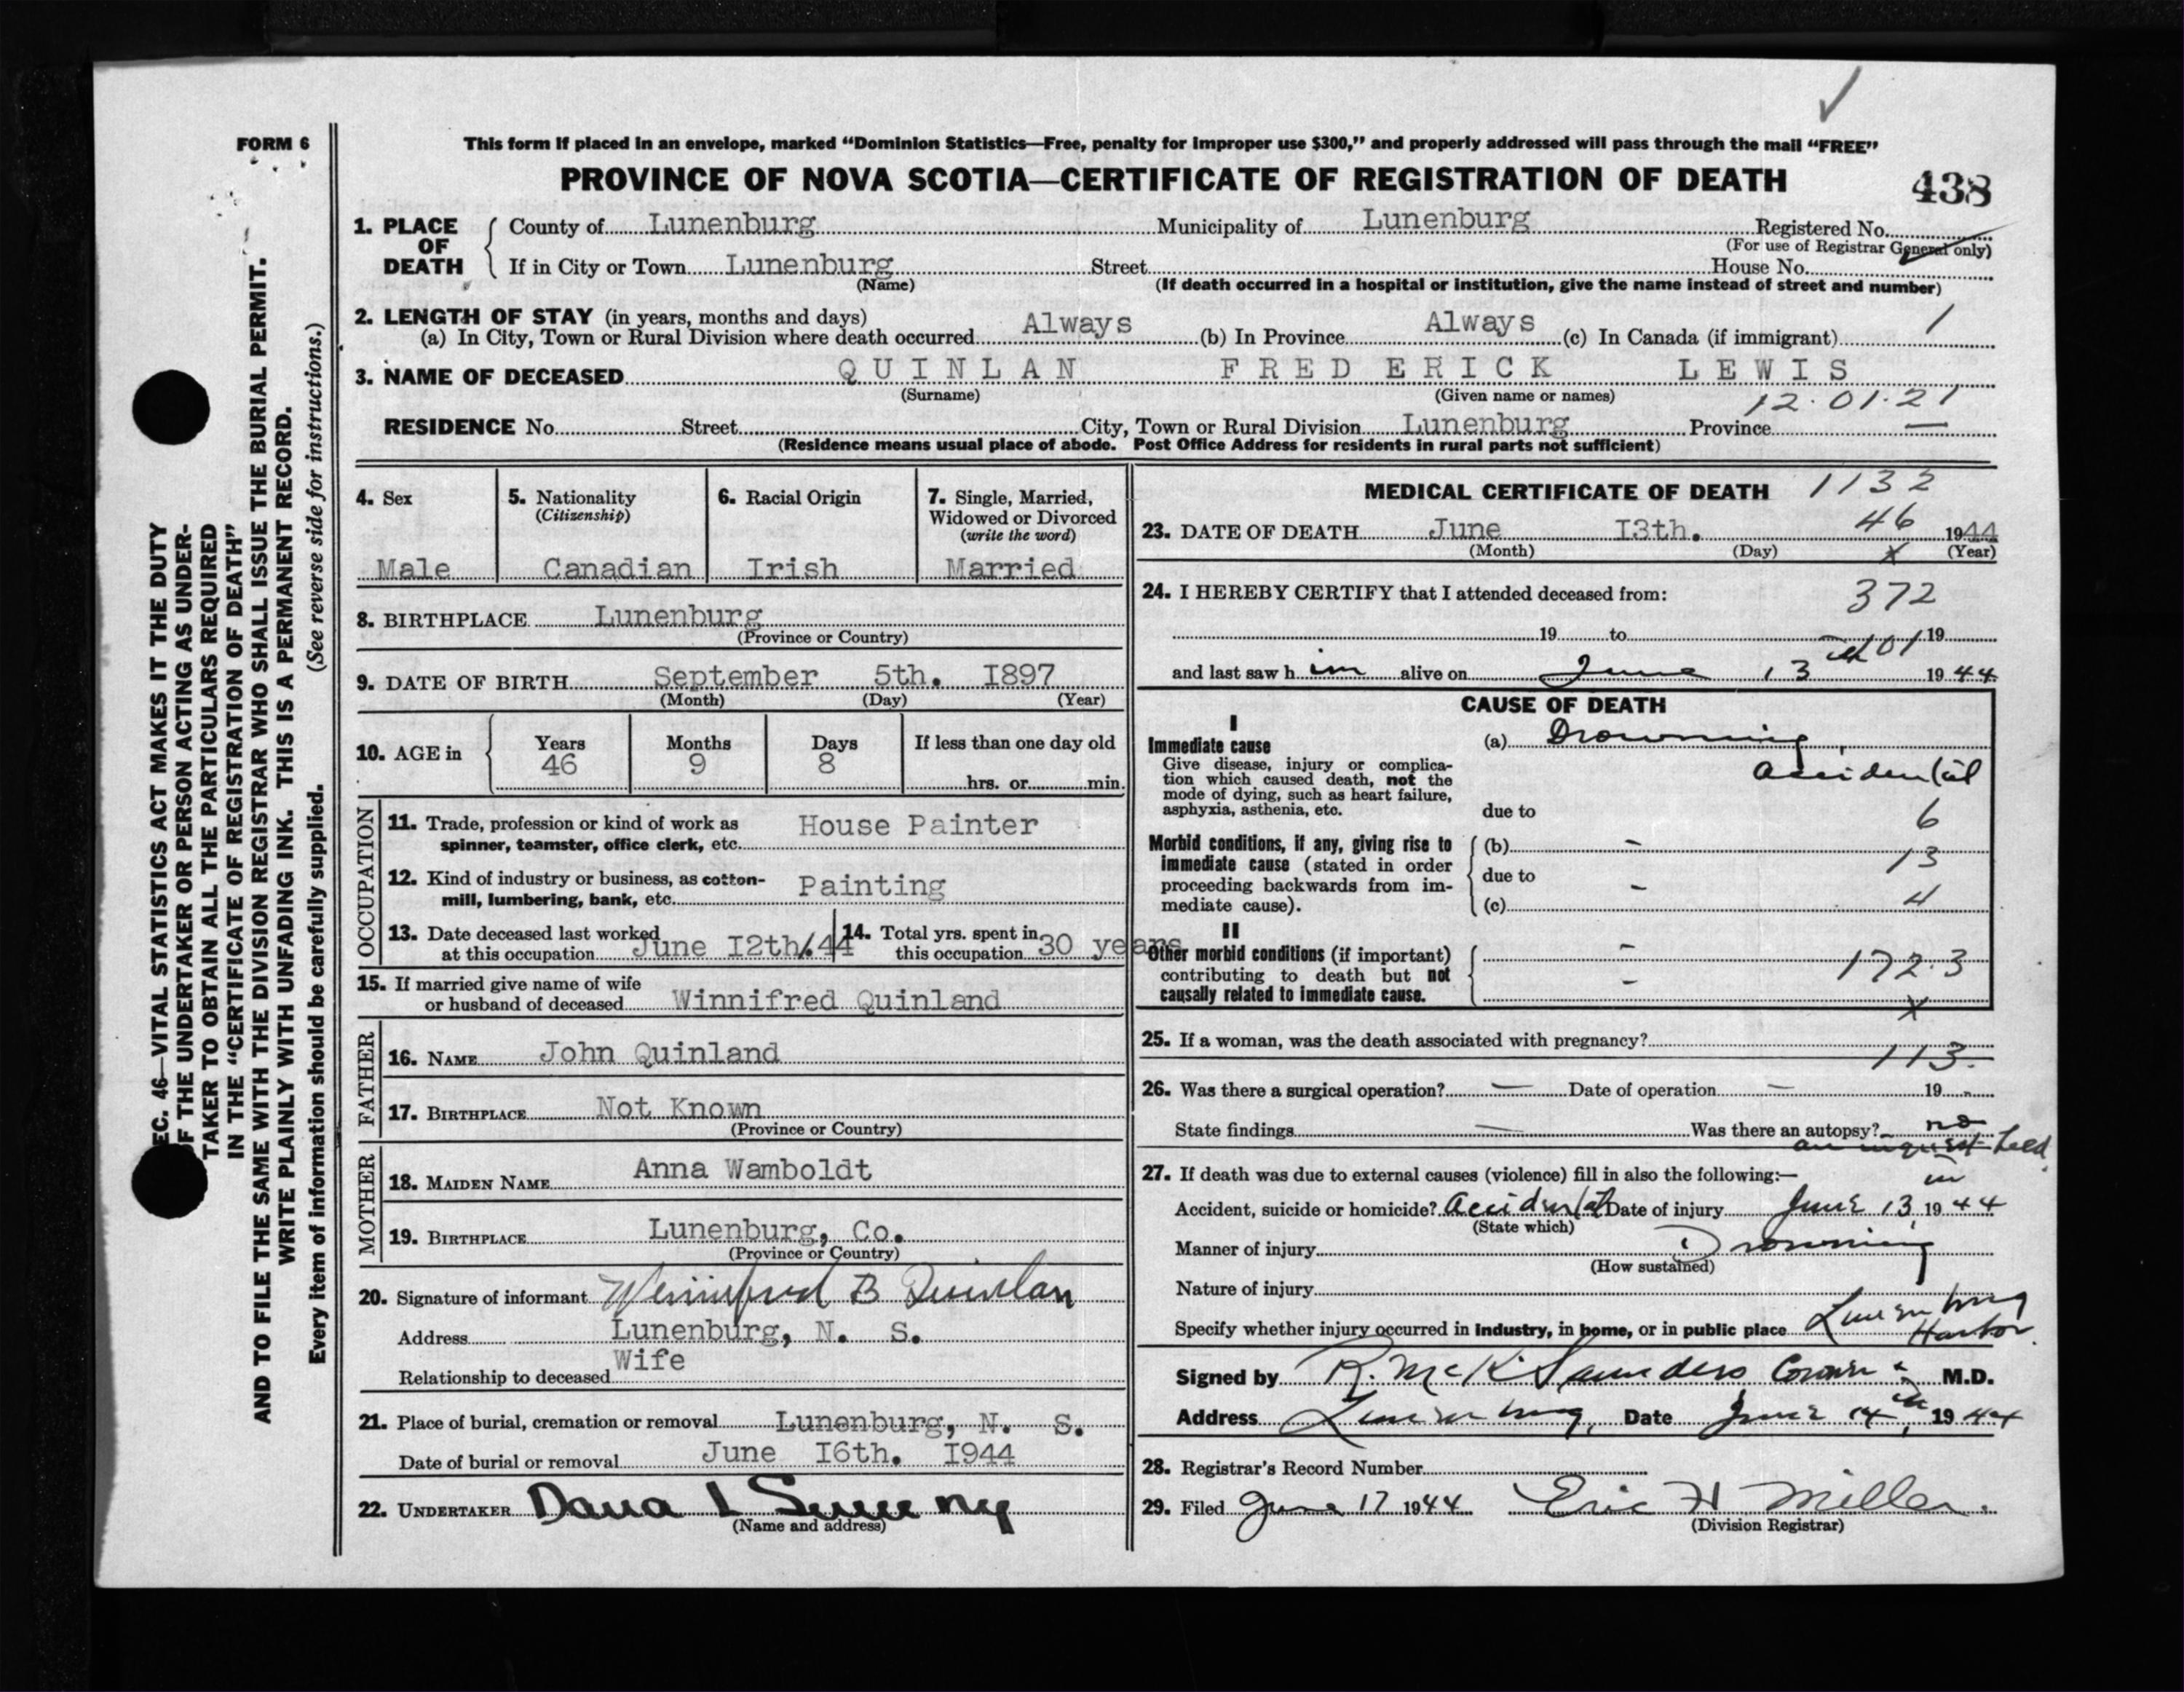 FORM 6
This form if placed in an envelope, marked “Dominion Statistics—Free, penalty for improper use $300,” and properly addressed will pass through the mail “FREE”
PROVINCE OF NOVA SCOTIA—CERTIFICATE OF REGISTRATION OF DEATH
438
1. PLACE OF DEATH
County of Lunenburg Municipality of Lunenburg Registered No.
(For use of Registrar General only)
If in City or Town Lunenburg Street House No.
(Name) (If death occurred in a hospital or institution, give the name instead of street and number)
2. LENGTH OF STAY (in years, months and days)
(a) In City, Town or Rural Division where death occurred Always (b) In Province Always (c) In Canada (if immigrant) 1
3. NAME OF DECEASED QUINLAN FREDERICK LEWIS
(Surname) (Given name or names)
12.01.21
RESIDENCE No. Street City, Town or Rural Division Lunenburg Province —
(Residence means usual place of abode. Post Office Address for residents in rural parts not sufficient)
4. Sex
Male
5. Nationality
(Citizenship)
Canadian
6. Racial Origin
Irish
7. Single, Married,
Widowed or Divorced
(write the word)
Married
8. BIRTHPLACE Lunenburg
(Province or Country)
9. DATE OF BIRTH September 5th. I897
(Month) (Day) (Year)
10. AGE in
Years Months Days If less than one day old
46 9 8
hrs. or min.
OCCUPATION
11. Trade, profession or kind of work as
spinner, teamster, office clerk, etc. House Painter
12. Kind of industry or business, as cotton-
mill, lumbering, bank, etc. Painting
13. Date deceased last worked
at this occupation June I2th/44
14. Total yrs. spent in
this occupation 30 years
15. If married give name of wife
or husband of deceased Winnifred Quinland
FATHER
16. NAME John Quinland
17. BIRTHPLACE Not Known
(Province or Country)
MOTHER
18. MAIDEN NAME Anna Wamboldt
19. BIRTHPLACE Lunenburg, Co.
(Province or Country)
20. Signature of informant Winnifred B Quinlan
Address Lunenburg, N. S.
Relationship to deceased Wife
21. Place of burial, cremation or removal Lunenburg, N. S.
Date of burial or removal June I6th. I944
22. UNDERTAKER Dana L Sweeny
(Name and address)
MEDICAL CERTIFICATE OF DEATH 1132
46
23. DATE OF DEATH June I3th. 1944
(Month) (Day) x (Year)
24. I HEREBY CERTIFY that I attended deceased from:
372
19 to 19
01
and last saw h im alive on June 13th 1944
CAUSE OF DEATH
I
Immediate cause
Give disease, injury or complica-
tion which caused death, not the
mode of dying, such as heart failure,
asphyxia, asthenia, etc.
(a) Drowning,
accidental
due to
6
Morbid conditions, if any, giving rise to
immediate cause (stated in order
proceeding backwards from im-
mediate cause).
(b) –
13
due to
–
(c)
4
II
Other morbid conditions (if important)
contributing to death but not
causally related to immediate cause.
–
–
172.3
x
25. If a woman, was the death associated with pregnancy?
113.
26. Was there a surgical operation? — Date of operation — 19
State findings — Was there an autopsy? no
an inquest held
27. If death was due to external causes (violence) fill in also the following:—
Accident, suicide or homicide? Accidental Date of injury June 13, 1944
(State which)
Manner of injury Drowning
(How sustained)
Nature of injury
Specify whether injury occurred in industry, in home, or in public place in Lunenburg
Harbor
Signed by R. McK Saunders Coroner M.D.
Address Lunenburg, Date June 14th, 1944
28. Registrar's Record Number
29. Filed June 17 1944 Eric H Miller.
(Division Registrar)
EC. 46—VITAL STATISTICS ACT MAKES IT THE DUTY
OF THE UNDERTAKER OR PERSON ACTING AS UNDER-
TAKER TO OBTAIN ALL THE PARTICULARS REQUIRED
IN THE “CERTIFICATE OF REGISTRATION OF DEATH”
AND TO FILE THE SAME WITH THE DIVISION REGISTRAR WHO SHALL ISSUE THE BURIAL PERMIT.
WRITE PLAINLY WITH UNFADING INK. THIS IS A PERMANENT RECORD.
Every item of information should be carefully supplied. (See reverse side for instructions.)